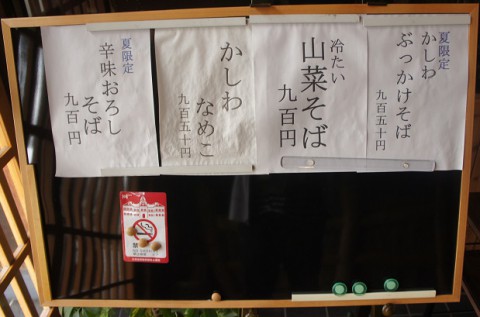 夏限定
かしわ
ぶっかけそば
九百五十円
冷たい
山菜そば
九百円
かしわ
なめこ
九百五十円
夏限定
辛味おろし
そば
九百円